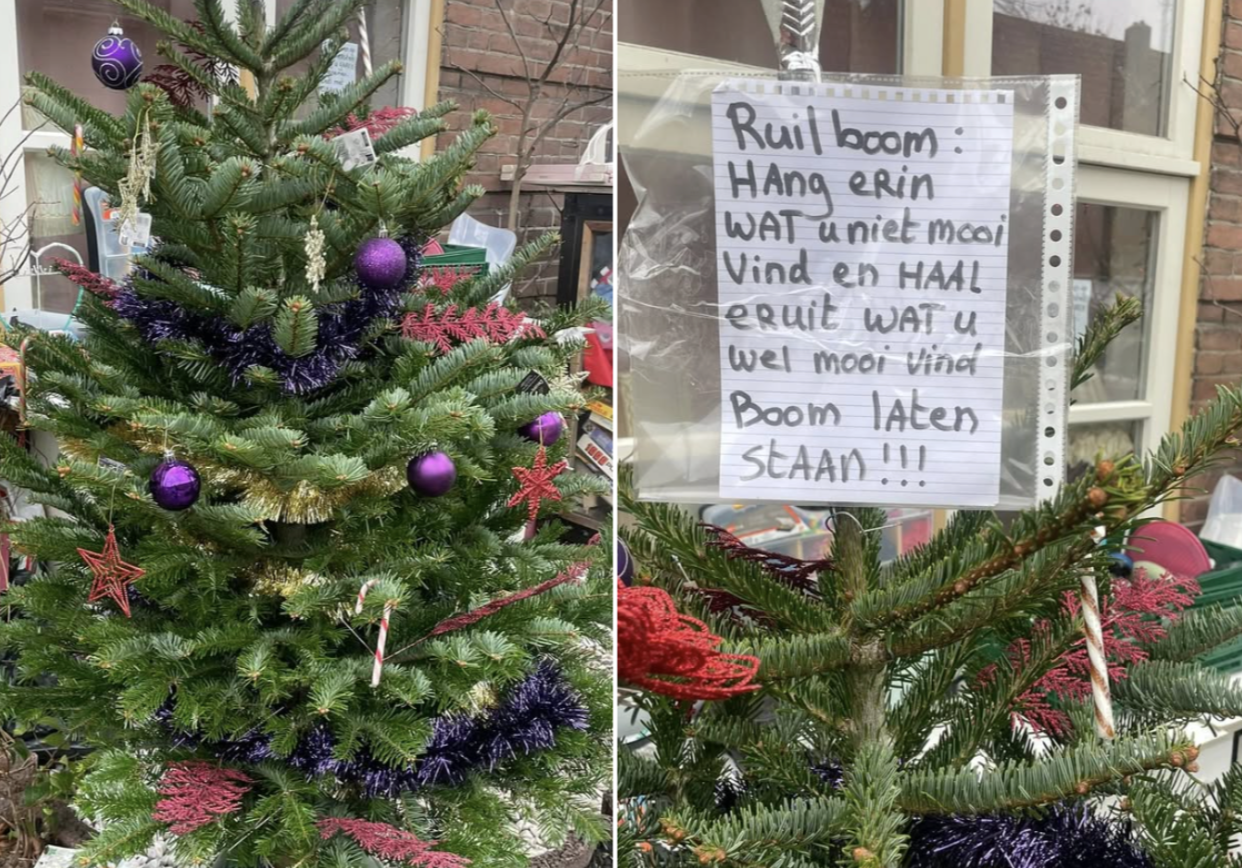 Ruilboom:
HAng eRin
WAT u niet mooi
Vind en HAAL
eRuit WAT u
wel mooi vind
Boom lATen
STAAn!!!